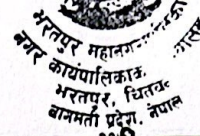 भरतपुर महानगर
नगर कार्यपालिकाको
भरतपुर, चितवन
बागमती प्रदेश, नेपाल